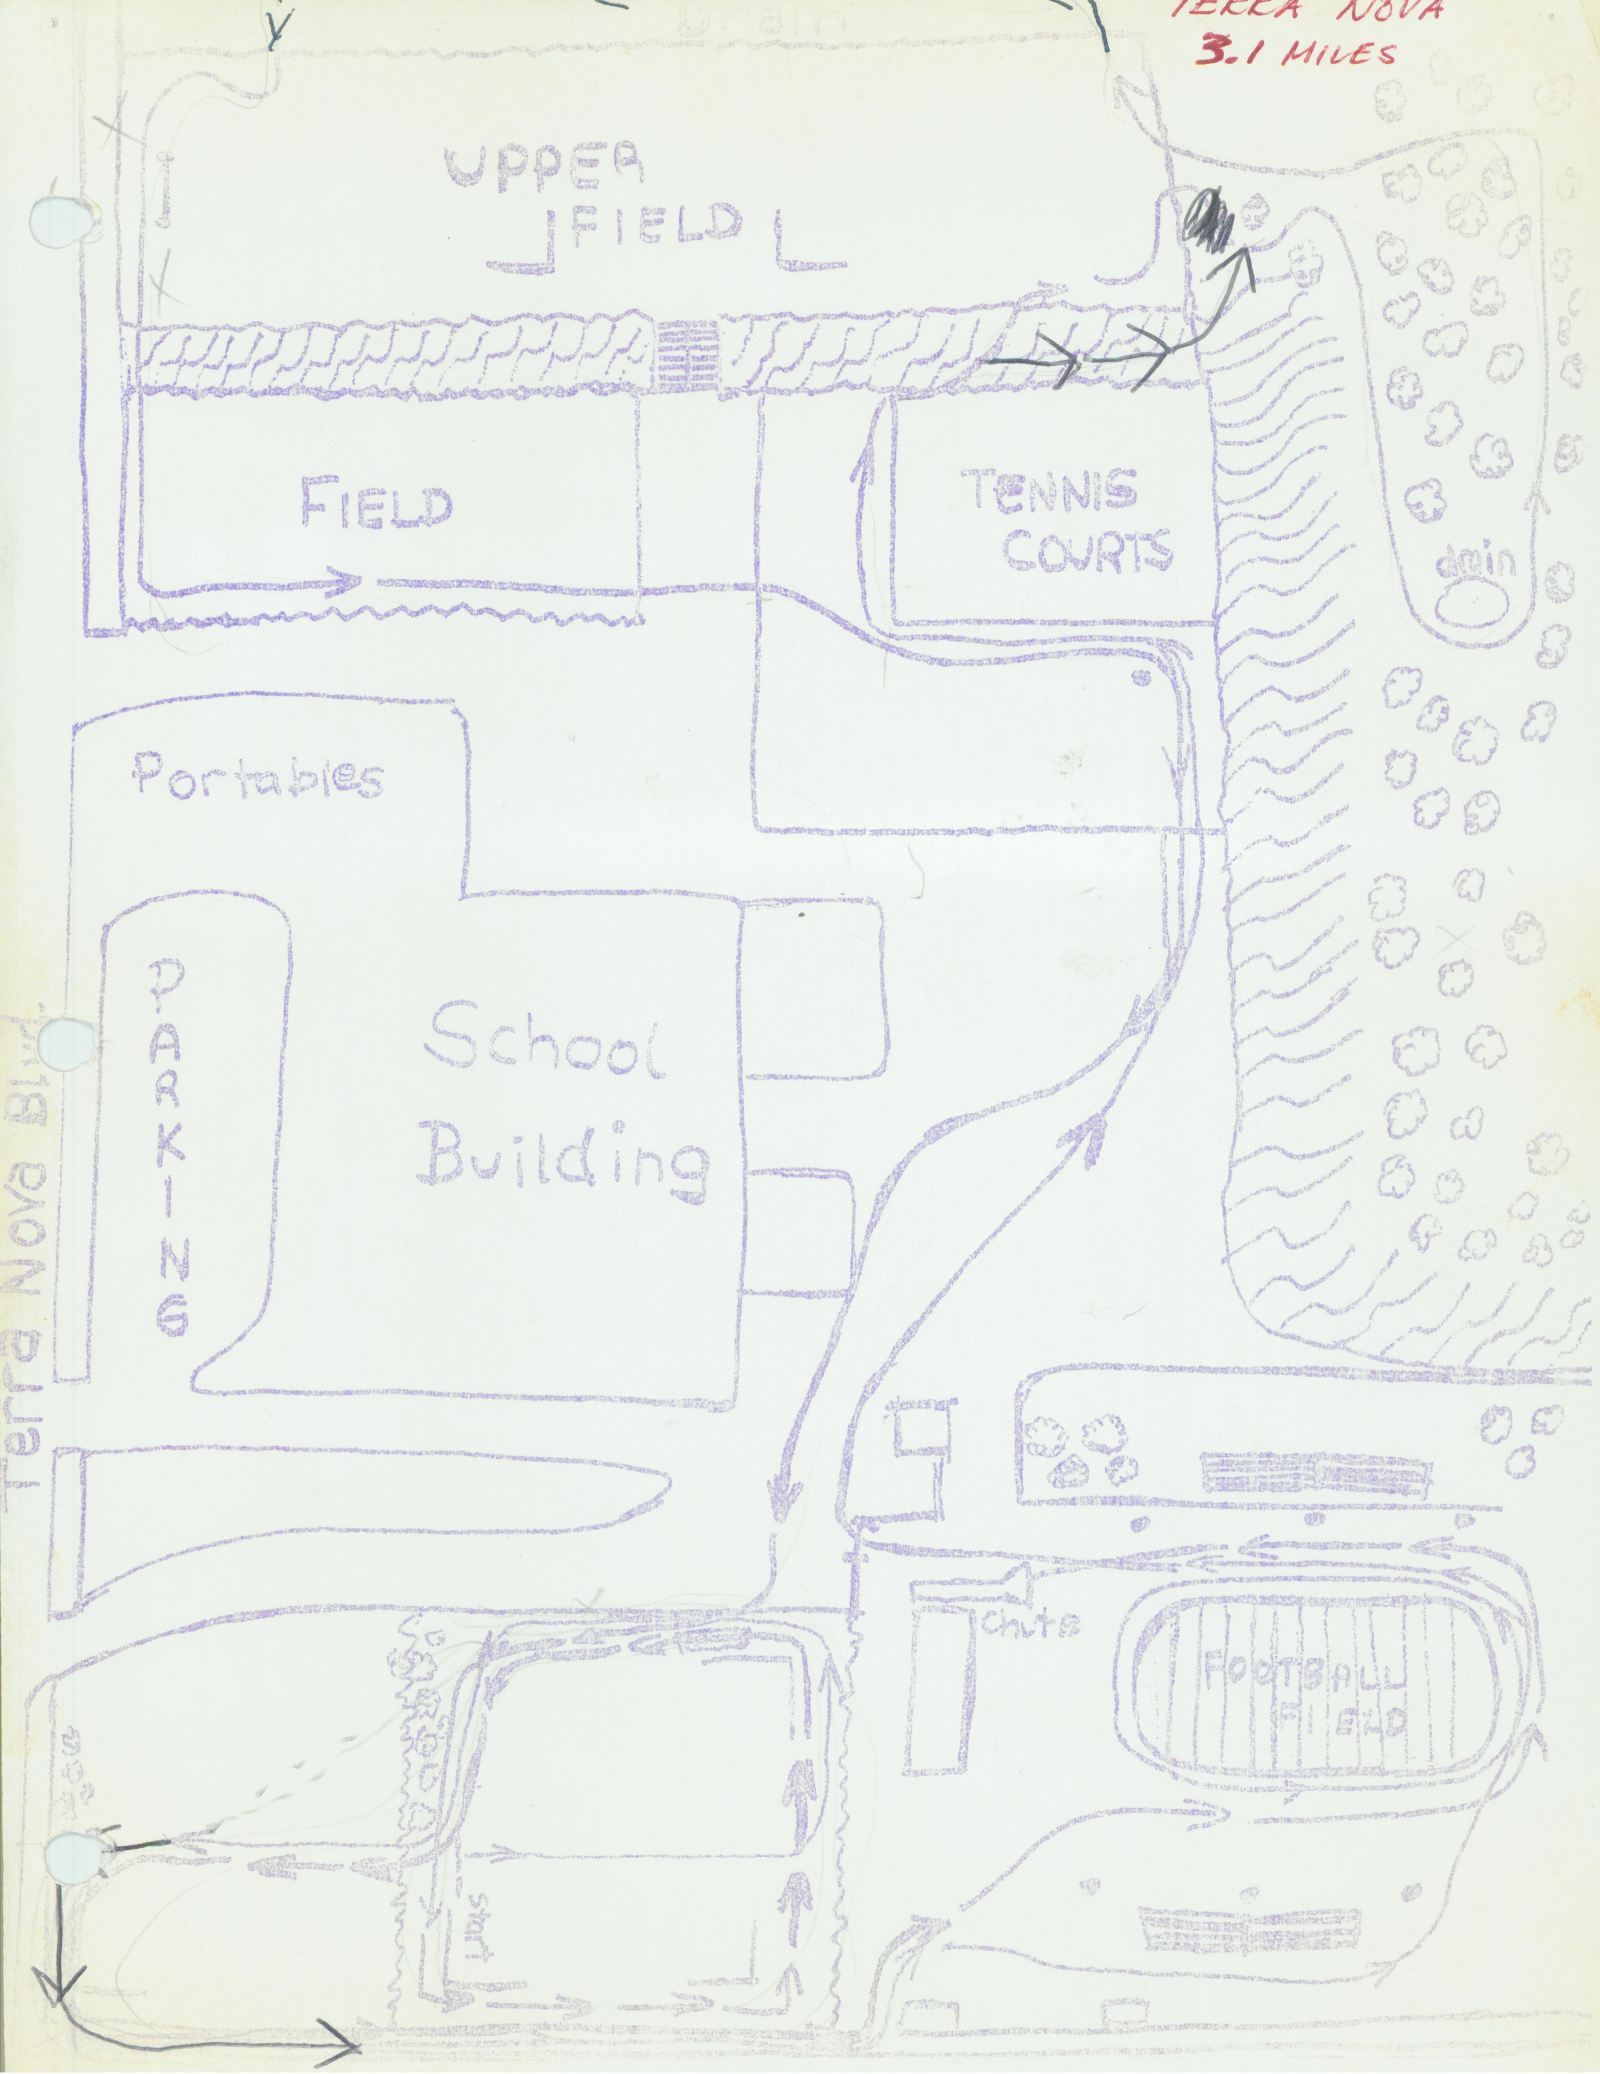 TERRA NOVA
3.1 MILES
Drain
UPPER
FIELD
FIELD
TENNIS
COURTS
drain
Portables
PARKING
School
Building
Terra Nova Blvd.
Chute
FOOTBALL
FIELD
Start